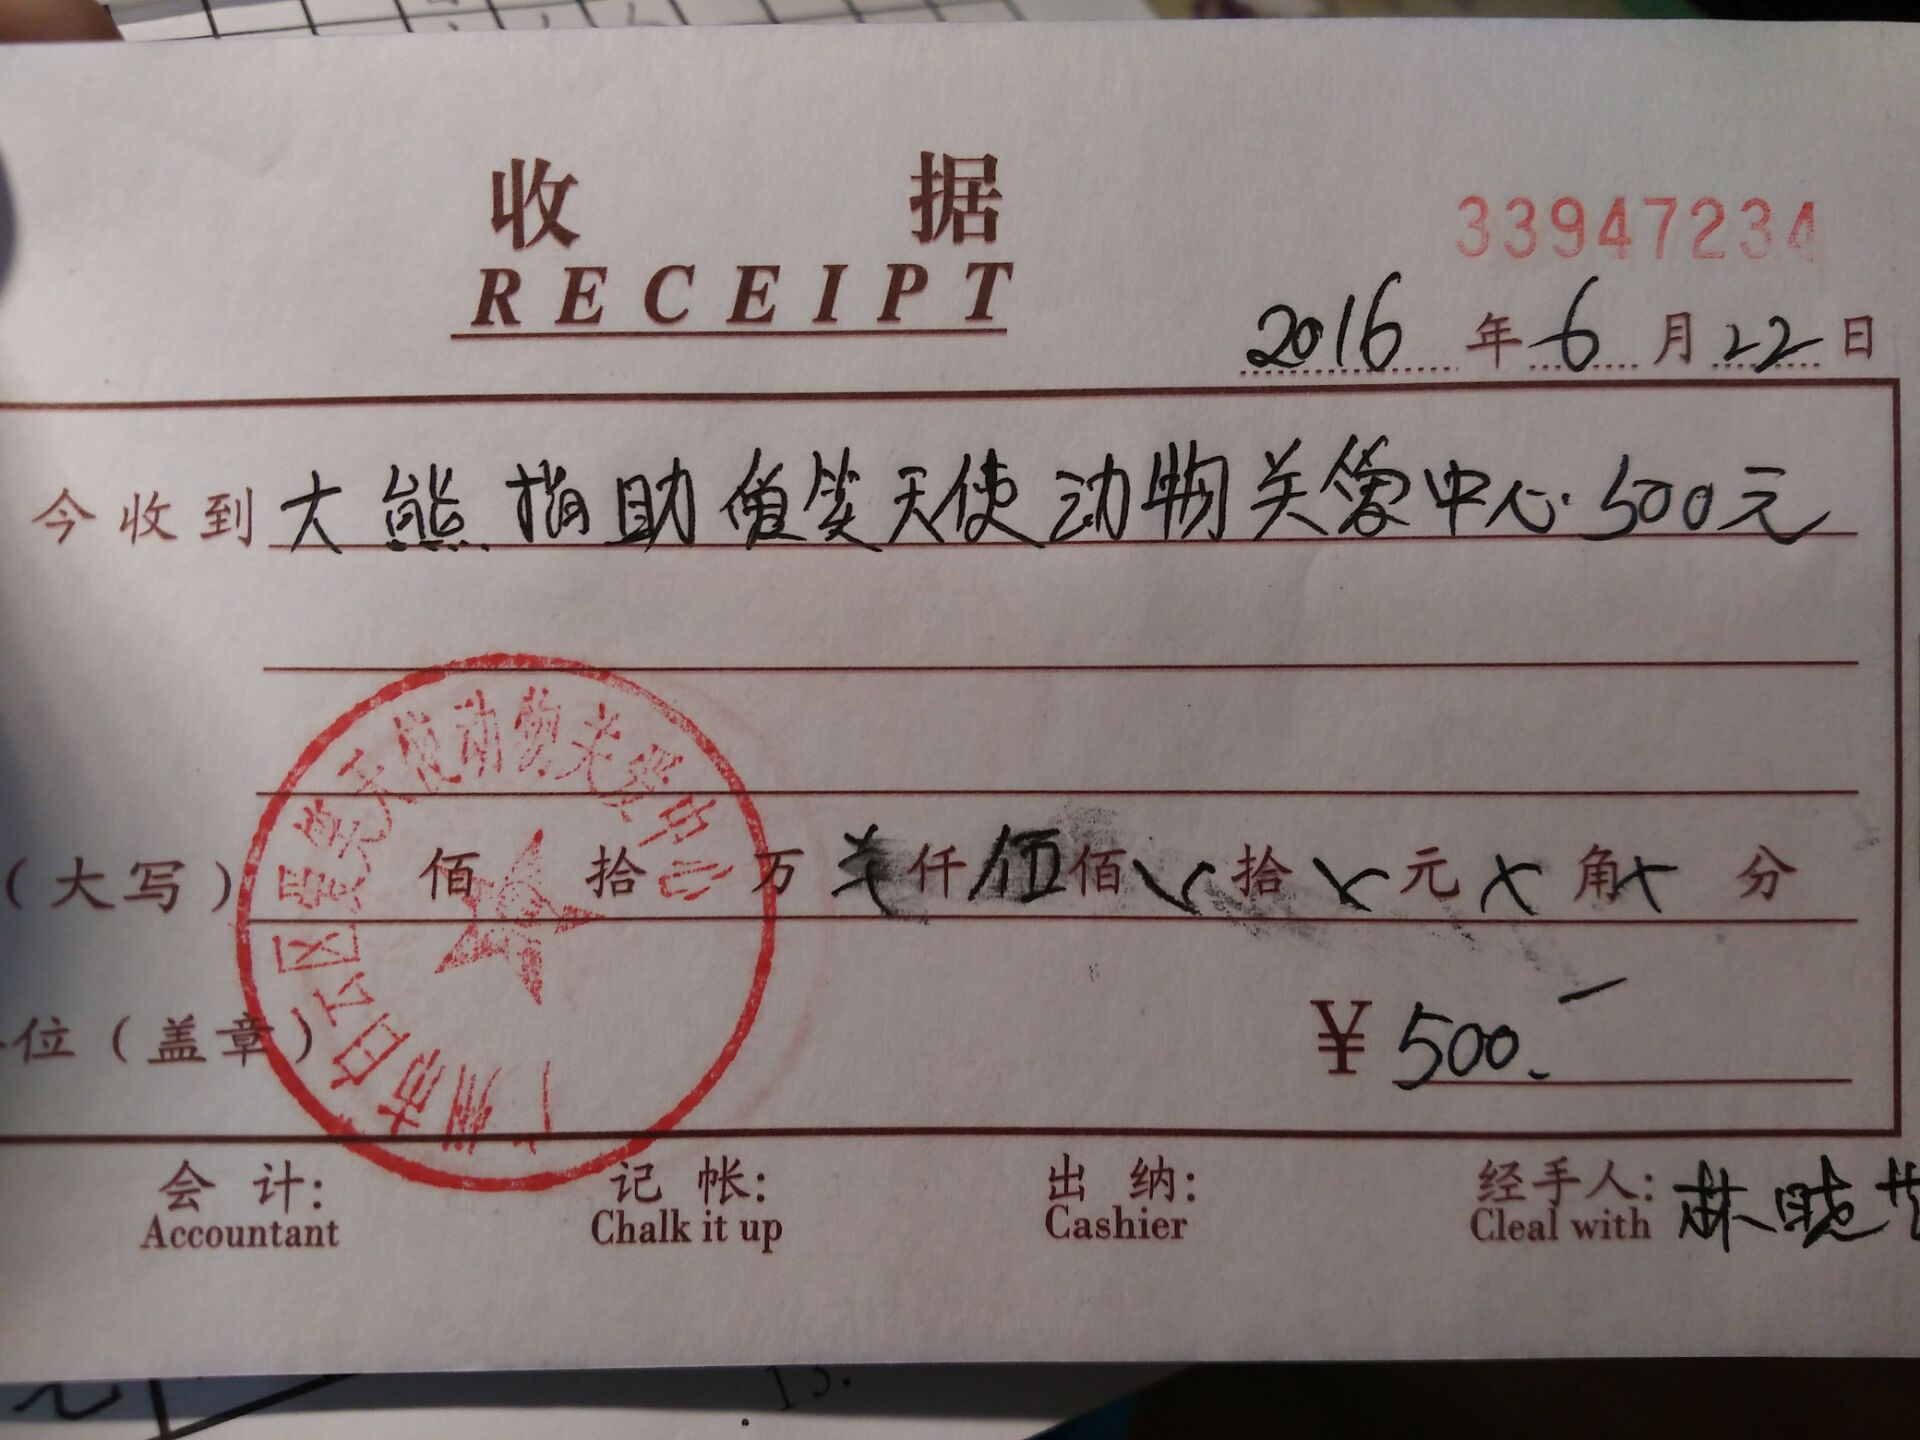 收 据
RECEIPT
33947234
2016 年 6 月 22 日
今收到 大熊捐助 笑天使动物关爱中心 500元
(大写) 佰 拾 万 仟 伍 佰 拾 元 角 分
位(盖章) ¥ 500.
广州市白云区 笑天使动物关爱中心
会 计: 记 帐: 出 纳: 经手人: 林晓
Accountant Chalk it up Cashier Cleal with